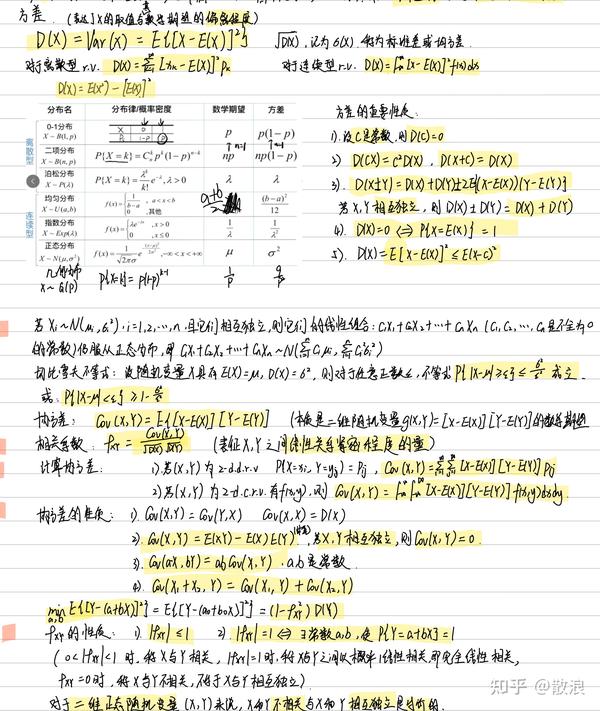 方差. (表达了X的取值与数学期望的偏离程度)
D(X) = Var(X) = E{[X-E(X)]²} √D(X), 记为 σ(X). 称为标准差或均方差.
对于离散型 r.v. D(X)=∑[xₖ-E(X)]²pₖ 对于连续型 r.v. D(X)=∫[x-E(X)]²f(x)dx
D(X) = E(X²) - [E(X)]²
分布名称 分布律/概率密度 数学期望 方差
离散型
0-1分布 X~B(1, p) X 0 1 P 1-p p p p(1-p)
二项分布 X~B(n, p) P{X=k}=Cₙᵏpᵏ(1-p)ⁿ⁻ᵏ np np(1-p)
泊松分布 X~P(λ) P{X=k}=λᵏ/k! e^-λ, λ>0 λ λ
连续型
均匀分布 X~U(a,b) f(x)={1/(b-a), a<x<b 0, 其他 (a+b)/2 (b-a)²/12
指数分布 X~Exp(λ) f(x)={λe^-λx, x>0 0 x≤0 1/λ 1/λ²
正态分布 X~N(μ,σ²) f(x)=1/(√2π σ) e^-(x-μ)²/2σ², -∞<x<+∞ μ σ²
几何分布 X~G(p) P{X=k}=p(1-p)ᵏ⁻¹ 1/p q/p²
方差的重要性质:
1). 设C是常数, 则D(C)=0
2) D(CX)=C²D(X). D(X+C)=D(X)
3). D(X±Y)=D(X)+D(Y)±2E{(X-E(X))(Y-E(Y))}
若X,Y相互独立, 则D(X±Y)=D(X)+D(Y)
4). D(X)=0 ⇔ P{X=E(X)}=1
5). D(X)=E[X-E(X)]²≤E(X-C)²
若 Xᵢ~N(μᵢ,σᵢ²), i=1,2,…,n. 且它们相互独立, 则它们的线性组合: C₁X₁+C₂X₂+…+CₙXₙ (C₁,C₂,…,Cₙ是不全为0
的常数)仍服从正态分布, 即 C₁X₁+C₂X₂+…+CₙXₙ~N(∑Cᵢμᵢ, ∑Cᵢ²σᵢ²)
切比雪夫不等式: 设随机变量X具有E(X)=μ, D(X)=σ², 则对于任意正数ε, 不等式P{|X-μ|≥ε}≤σ²/ε² 成立.
或: P{|X-μ|<ε}≥1-σ²/ε²
协方差: Cov(X,Y)=E{[X-E(X)][Y-E(Y)]} (本质是二维随机变量g(X,Y)=[X-E(X)][Y-E(Y)]的数学期望
相关系数: ρxy=Cov(X,Y)/√D(X)√D(Y) (表征X,Y之间线性关系紧密程度的量)
计算协方差: 1)若(X,Y)为2-d.d.r.v P(X=xᵢ,Y=yⱼ)=Pᵢⱼ, Cov(X,Y)=∑∑[X-E(X)][Y-E(Y)]Pᵢⱼ
2)若(X,Y)为2-d.c.r.v. 有f(x,y), 则 Cov(X,Y)=∫∫[X-E(X)][Y-E(Y)]f(x,y)dxdy.
协方差的性质: 1). Cov(X,Y)=Cov(Y,X) Cov(X,X)=D(X)
2). Cov(X,Y)=E(XY)-E(X)E(Y). 若X,Y相互独立, 则Cov(X,Y)=0.
3). Cov(aX,bY)=abCov(X,Y). a,b是常数.
4). Cov(X₁+X₂,Y)=Cov(X₁,Y)+Cov(X₂,Y)
min a,b E{[Y-(a+bX)]²}=E{[Y-(a₀+b₀X)]²}=(1-ρxy²)D(Y)
ρxy的性质: 1). |ρxy|≤1 2). |ρxy|=1⇔∃常数a,b, 使P{Y=a+bX}=1
(0<|ρxy|<1时, 称X与Y相关, |ρxy|=1时, 称X与Y之间以概率1线性相关, 即完全线性相关,
ρxy=0时, 称X与Y不相关, 不等于X与Y相互独立)
对于二维正态随机变量(X,Y)来说, X和Y不相关与X和Y相互独立是等价的.
知乎 @散浪